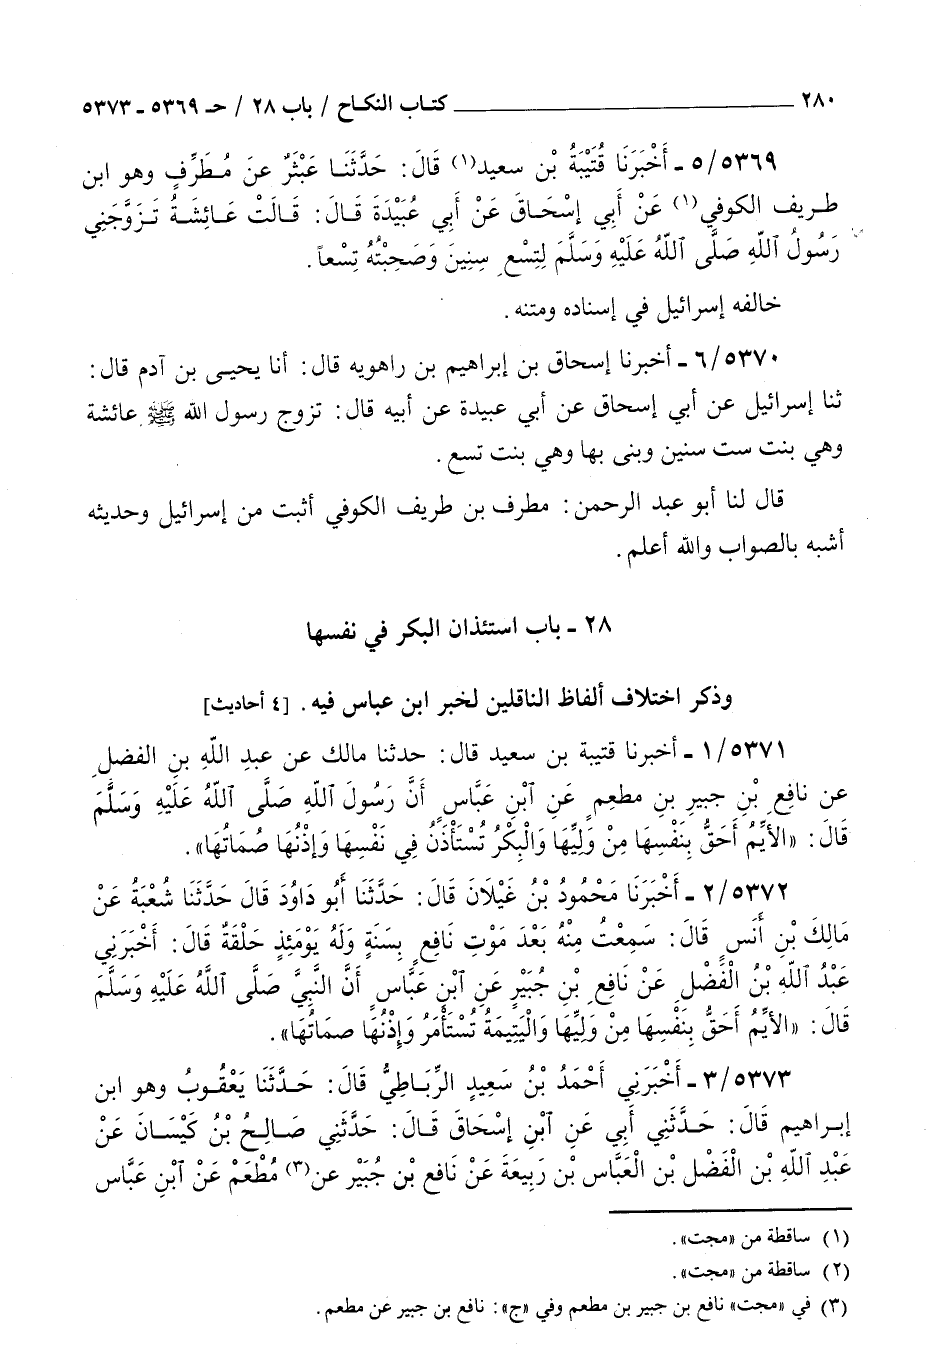 ٢٨٠ ــــــــــــــــــــــــــــ كتاب النكاح / باب ٢٨ / حـ ٥٣٦٩ ـ ٥٣٧٣
٥/٥٣٦٩ ـ أَخْبَرَنَا قُتَيْبَةُ بْن سعيد(١) قَالَ: حَدَّثَنَا عَبْثَرٌ عنَ مُطَرِّفٍ وهو ابن
طريف الكوفي(١) عَنْ أَبِي إِسْحَاقَ عَنْ أَبِي عُبَيْدَةَ قَالَ: قَالَتْ عَائِشَةُ تَزَوَّجَنِي
رَسُولُ ٱللّٰهِ صَلَّى ٱللّٰهُ عَلَيْهِ وَسَلَّمَ لِتِسْعِ سِنِينَ وَصَحِبْتُهُ تِسْعاً.
خالفه إسرائيل في إسناده ومتنه.
٦/٥٣٧٠ ـ أخبرنا إسحاق بن إبراهيم بن راهويه قال: أنا يحيى بن آدم قال:
ثنا إسرائيل عن أبي إسحاق عن أبي عبيدة عن أبيه قال: تزوج رسول الله ﷺ عائشة
وهي بنت ست سنين وبنى بها وهي بنت تسع.
قال لنا أبو عبد الرحمن: مطرف بن طريف الكوفي أثبت من إسرائيل وحديثه
أشبه بالصواب والله أعلم.
٢٨ ـ باب استئذان البكر في نفسها
وذكر اختلاف ألفاظ الناقلين لخبر ابن عباس فيه. [٤ أحاديث]
١/٥٣٧١ ـ أخبرنا قتيبة بن سعيد قال: حدثنا مالك عن عبدِ اللّٰهِ بنِ الفضلِ
عن نافعِ بْنِ جبيرِ بنِ مطعمٍ عَنِ ٱبْنِ عَبَّاسٍ أَنَّ رَسُولَ ٱللّٰهِ صَلَّى ٱللّٰهُ عَلَيْهِ وَسَلَّمَ
قَالَ: «الأَيِّمُ أَحَقُّ بِنَفْسِهَا مِنْ وَلِيِّهَا وَالْبِكْرُ تُسْتَأْذَنُ فِي نَفْسِهَا وَإِذْنُهَا صُمَاتُهَا».
٢/٥٣٧٢ ـ أَخْبَرَنَا مَحْمُودُ بْنُ غَيْلَانَ قَالَ: حَدَّثَنَا أَبُو دَاوُدَ قَالَ حَدَّثَنَا شُعْبَةُ عَنْ
مَالِكَ بْنِ أَنَسٍ قَالَ: سَمِعْتُ مِنْهُ بَعْدَ مَوْتِ نَافِعٍ بِسَنَةٍ وَلَهُ يَوْمَئِذٍ حَلْقَةٌ قَالَ: أَخْبَرَنِي
عَبْدُ ٱللّٰهِ بْنُ الْفَضْلِ عَنْ نَافِعِ بْنِ جُبَيْرٍ عَنِ ٱبْنِ عَبَّاسٍ أَنَّ النَّبِيَّ صَلَّى ٱللّٰهُ عَلَيْهِ وَسَلَّمَ
قَالَ: «الأَيِّمُ أَحَقُّ بِنَفْسِهَا مِنْ وَلِيِّهَا وَالْيَتِيمَةُ تُسْتَأْمَرُ وَإِذْنُهَا صماتُهَا».
٣/٥٣٧٣ ـ أَخْبَرَنِي أَحْمَدُ بْنُ سَعِيدٍ الرِّبَاطِيُّ قَالَ: حَدَّثَنَا يَعْقُوبُ وهو ابن
إبراهيم قَالَ: حَدَّثَنِي أَبِي عَنِ ٱبْنِ إِسْحَاقَ قَالَ: حَدَّثَنِي صَالِحُ بْنُ كَيْسَانَ عَنْ
عَبْدِ ٱللّٰهِ بْنِ الْفَضْلِ بْنِ الْعَبَّاسِ بْنِ رَبِيعَةَ عَنْ نَافِعِ بْنِ جُبَيْرِ عن(٣) مُطْعَمْ عَنْ ٱبْنِ عَبَّاس
(١) ساقطة من «مجت».
(٢) ساقطة من «مجت».
(٣) في «مجت» نافع بن جبير بن مطعم وفي «ج»: نافع بن جبير عن مطعم.